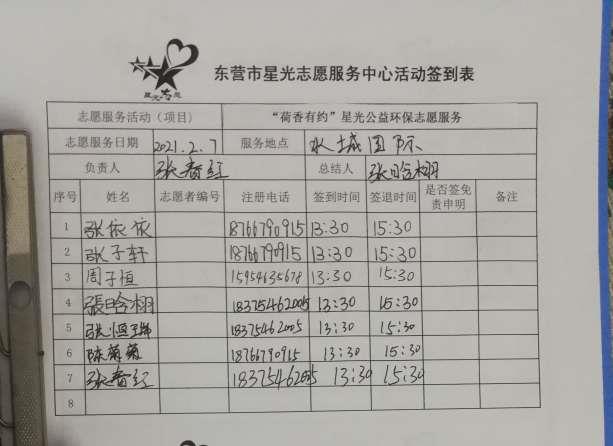 东营市星光志愿服务中心活动签到表
志愿服务活动（项目） “荷香有约”星光公益环保志愿服务
志愿服务日期 2021.2.7 服务地点 水城国际
负责人 张春红 总结人 张晗栩
序号 姓名 志愿者编号 注册电话 签到时间 签退时间 是否签免责申明 备注
1 张依依 18766790915 13:30 15:30
2 张子轩 18766790915 13:30 15:30
3 周子恒 15954635678 13:30 15:30
4 張晗栩 18375462005 13:30 15:30
5 张恒瑞 18375462005 13:30 15:30
6 陈菊菊 18766790915 13:30 15:30
7 张春红 18375462005 13:30 15:30
8